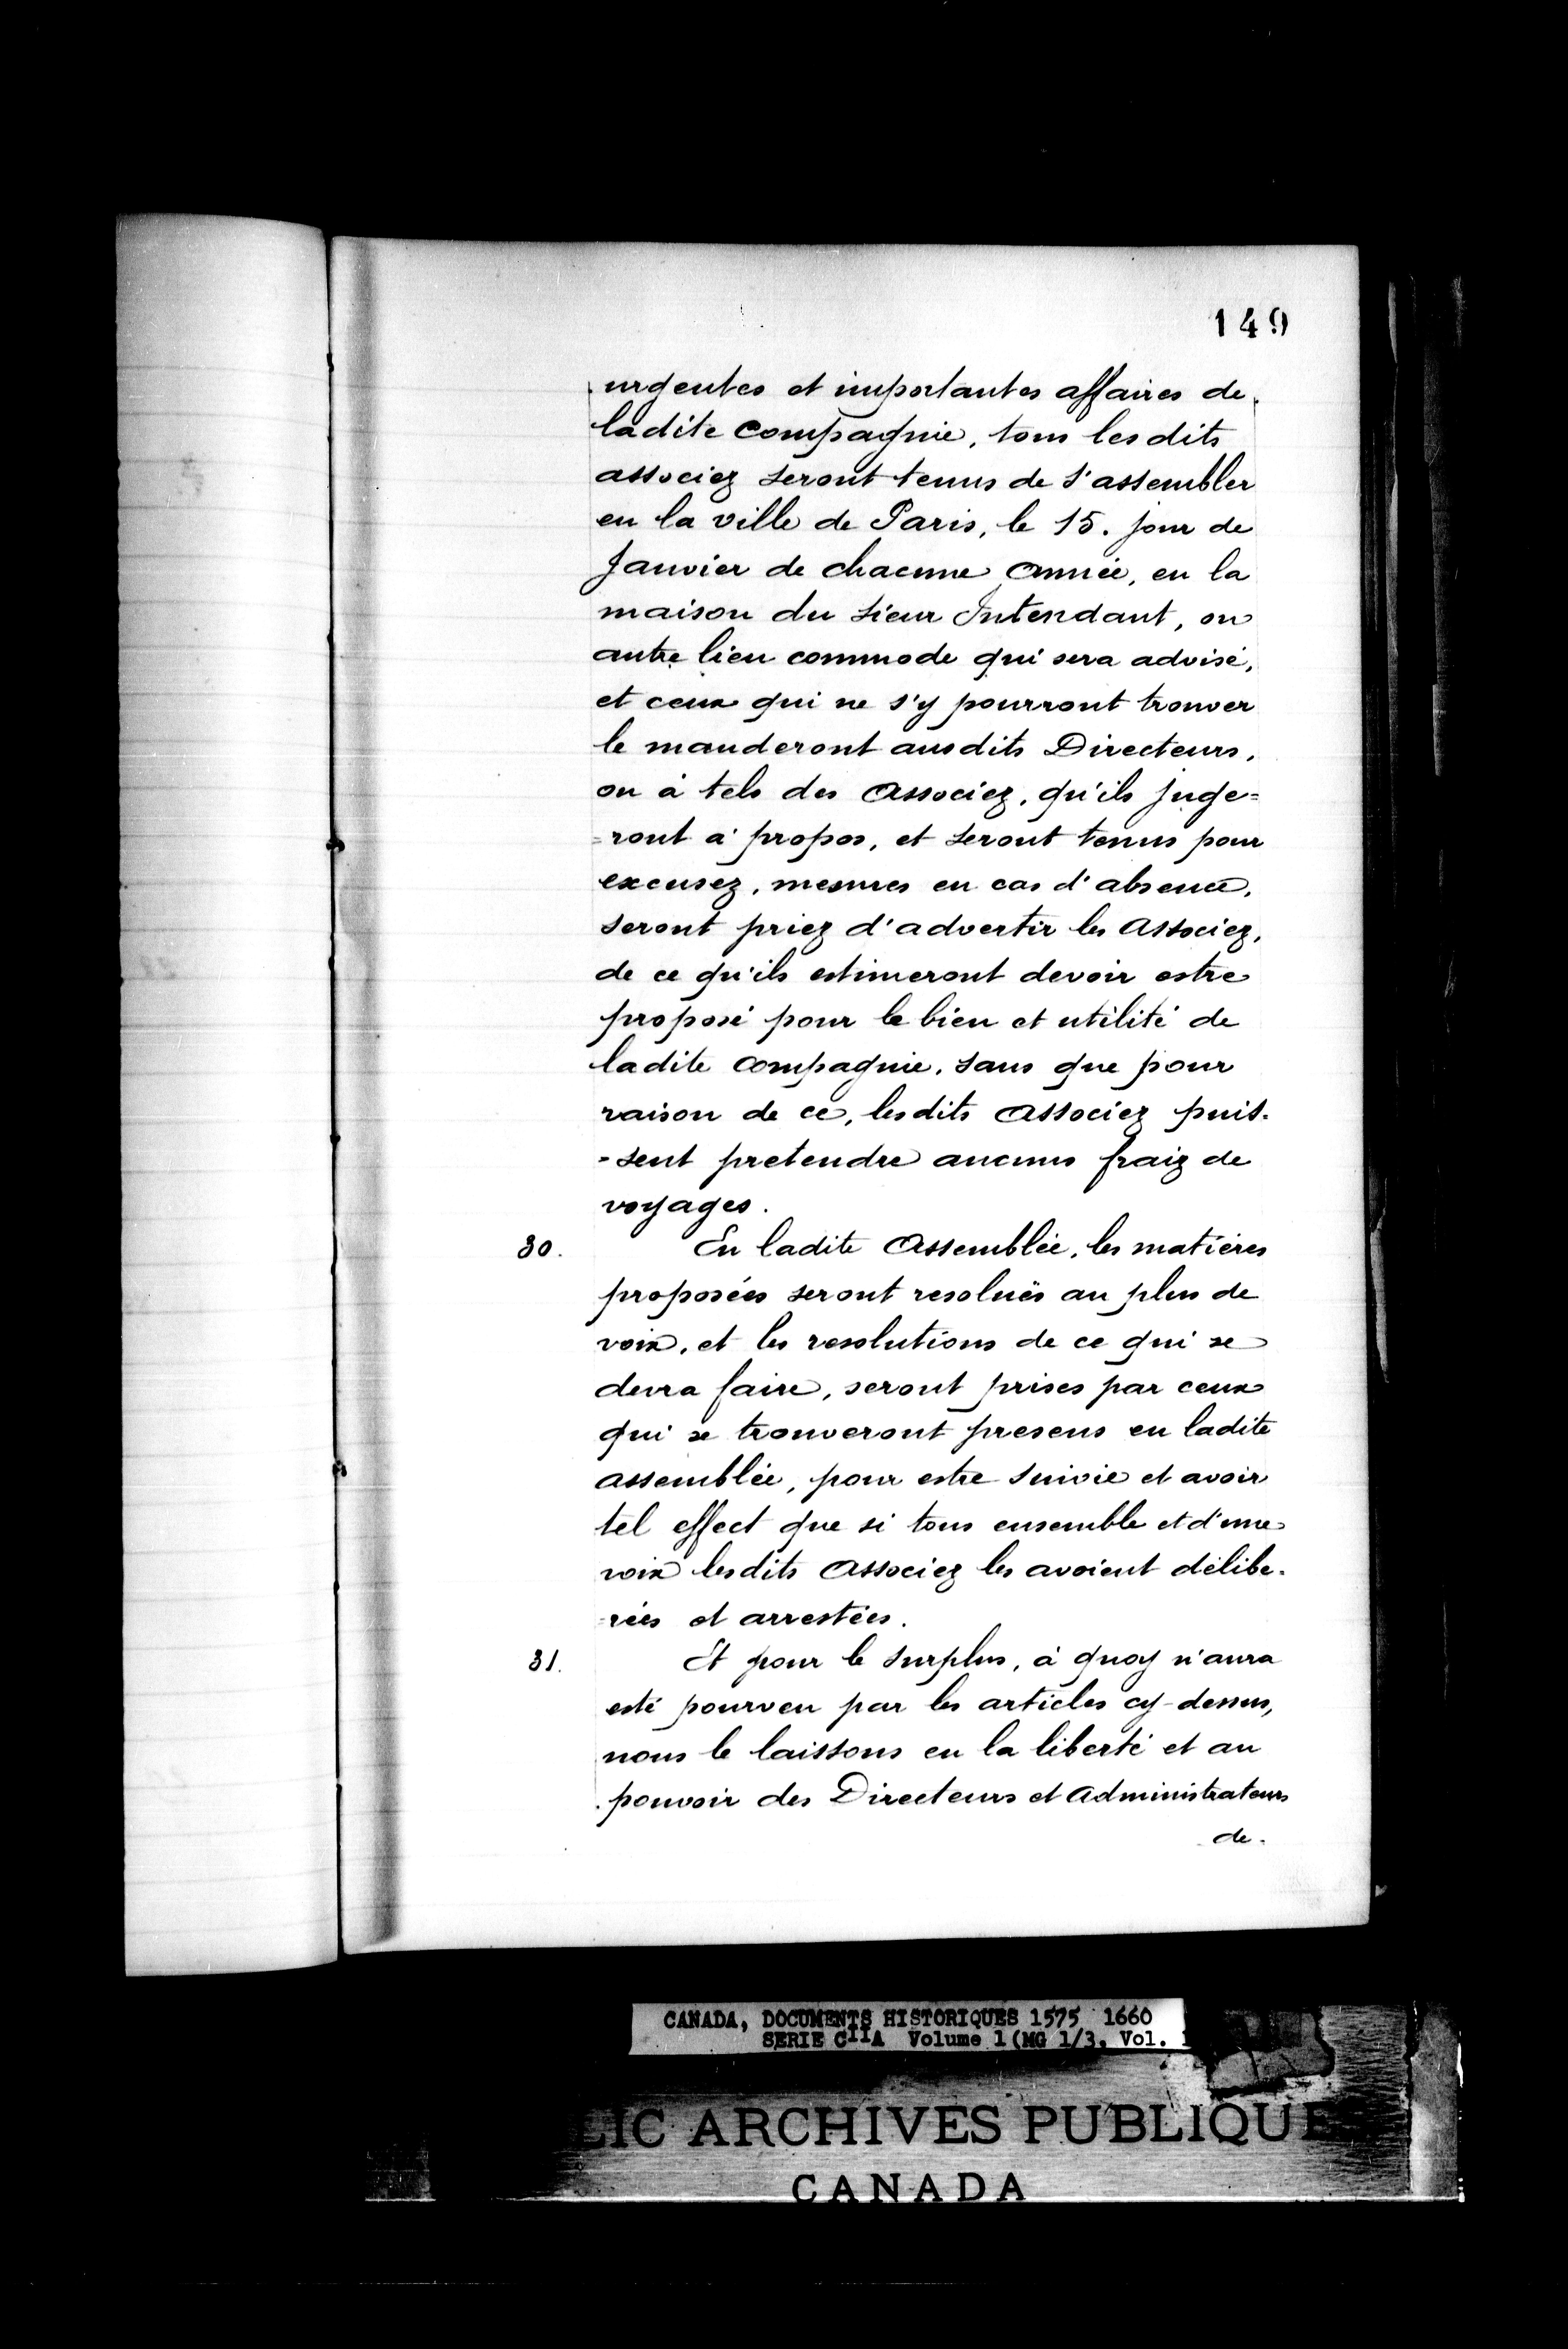 149
urgentes et importantes affaires de
ladite Compagnie, tous lesdits
associez seront tenus de s'assembler
en la ville de Paris, le 15. jour de
Janvier de chacune Année, en la
maison du sieur Intendant, ou
autre lieu commode qui sera advisé,
et ceux qui ne s'y pourront trouver
le manderont ausdits Directeurs,
ou à tels des Associez, qu'ils juge=
=ront à propos, et seront tenus pour
excusez, mesmes en cas d'absence,
seront priez d'advertir les Associez,
de ce qu'ils estimeront devoir estre
proposé pour le bien et utilité de
ladite Compagnie, sans que pour
raison de ce, lesdits Associez puis-
-sent pretendre aucuns fraiz de
voyages.
30. En ladite Assemblée, les matiéres
proposées seront resoluës au plus de
voix, et les resolutions de ce qui se
devra faire, seront prises par ceux
qui se trouveront presens en ladite
assemblée, pour estre suivie et avoir
tel effect que si tous ensemble et d'une
voix lesdits Associez les avoient délibe-
=rées et arrestées.
31. Et pour le surplus, à quoy n'aura
esté pourveu par les articles cy-dessus,
nous le laissons en la liberté et au
pouvoir des Directeurs et Administrateurs
de
CANADA, DOCUMENTS HISTORIQUES 1575 1660
SERIE CIIA Volume 1 (MG 1/3, Vol. 1
LIC ARCHIVES PUBLIQUE
CANADA